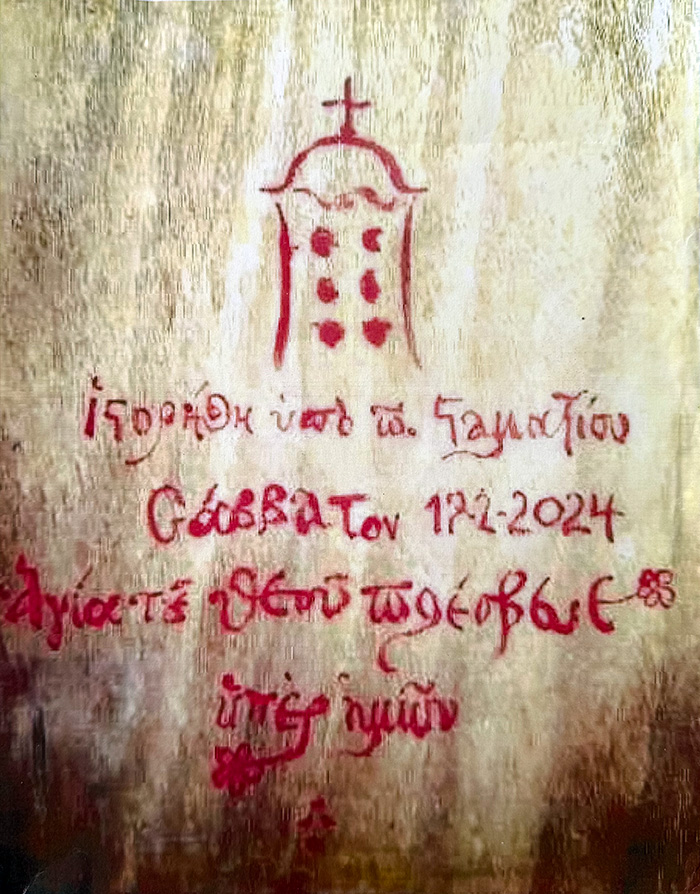 ἱστορήθη ὑπὸ π. Σταματίου
Σάββατον 17-2-2024
Ἁγία τοῦ Θεοῦ πρέσβευε
ὑπὲρ ἡμῶν